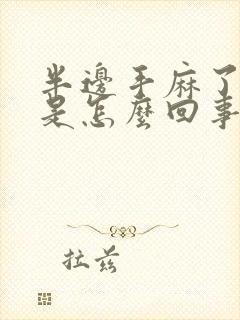 半邊手麻了
是怎麼回事
拉茲